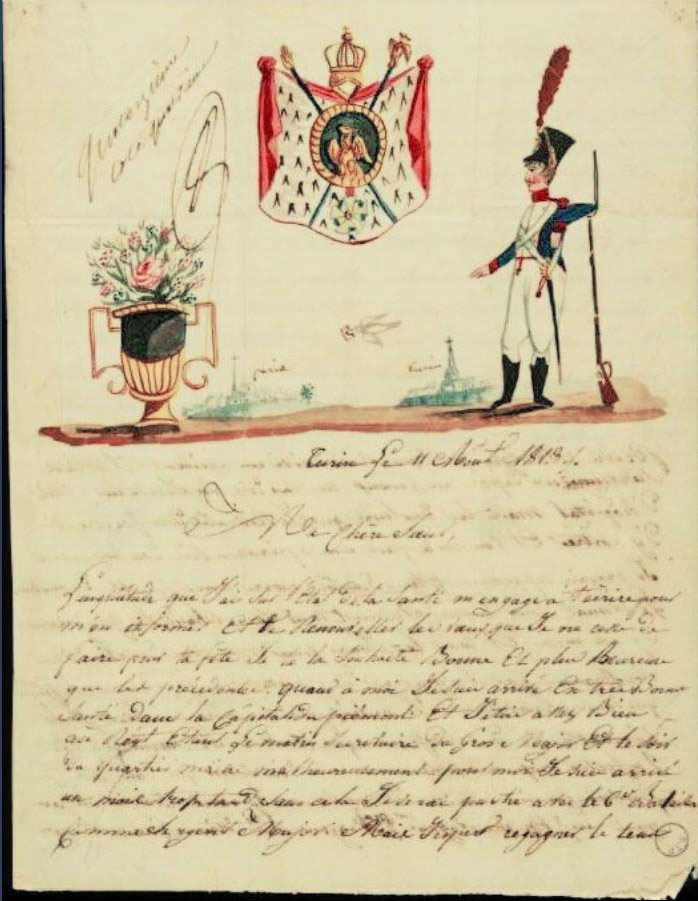 paris
turin
Turin Le 11 Août 1813
Ma Chère Sœur,
L'inquiétude que J'ai Sur l'Etat de ta Santé m'engage a t'ecrire pour
m'en informer Et te Renouveller les vœux que Je ne cesse de
faire pour ta fête Je te la Souhaite Bonne Et plus Heureuse
que les précédentes quand à moi Je suis arrivé En très Bonne
Santé dans la Capitale du piémont Et Je suis assez Bien
au Regt Etant Le matin Secretaire du Gros Major Et le Soir
du quartier maitre malheureusement pour moi Je suis arrivé
un mois trop tard Sans cela Je serai partie avec le 6e
Comme Sergent Major Mais J'espere regagner le tems